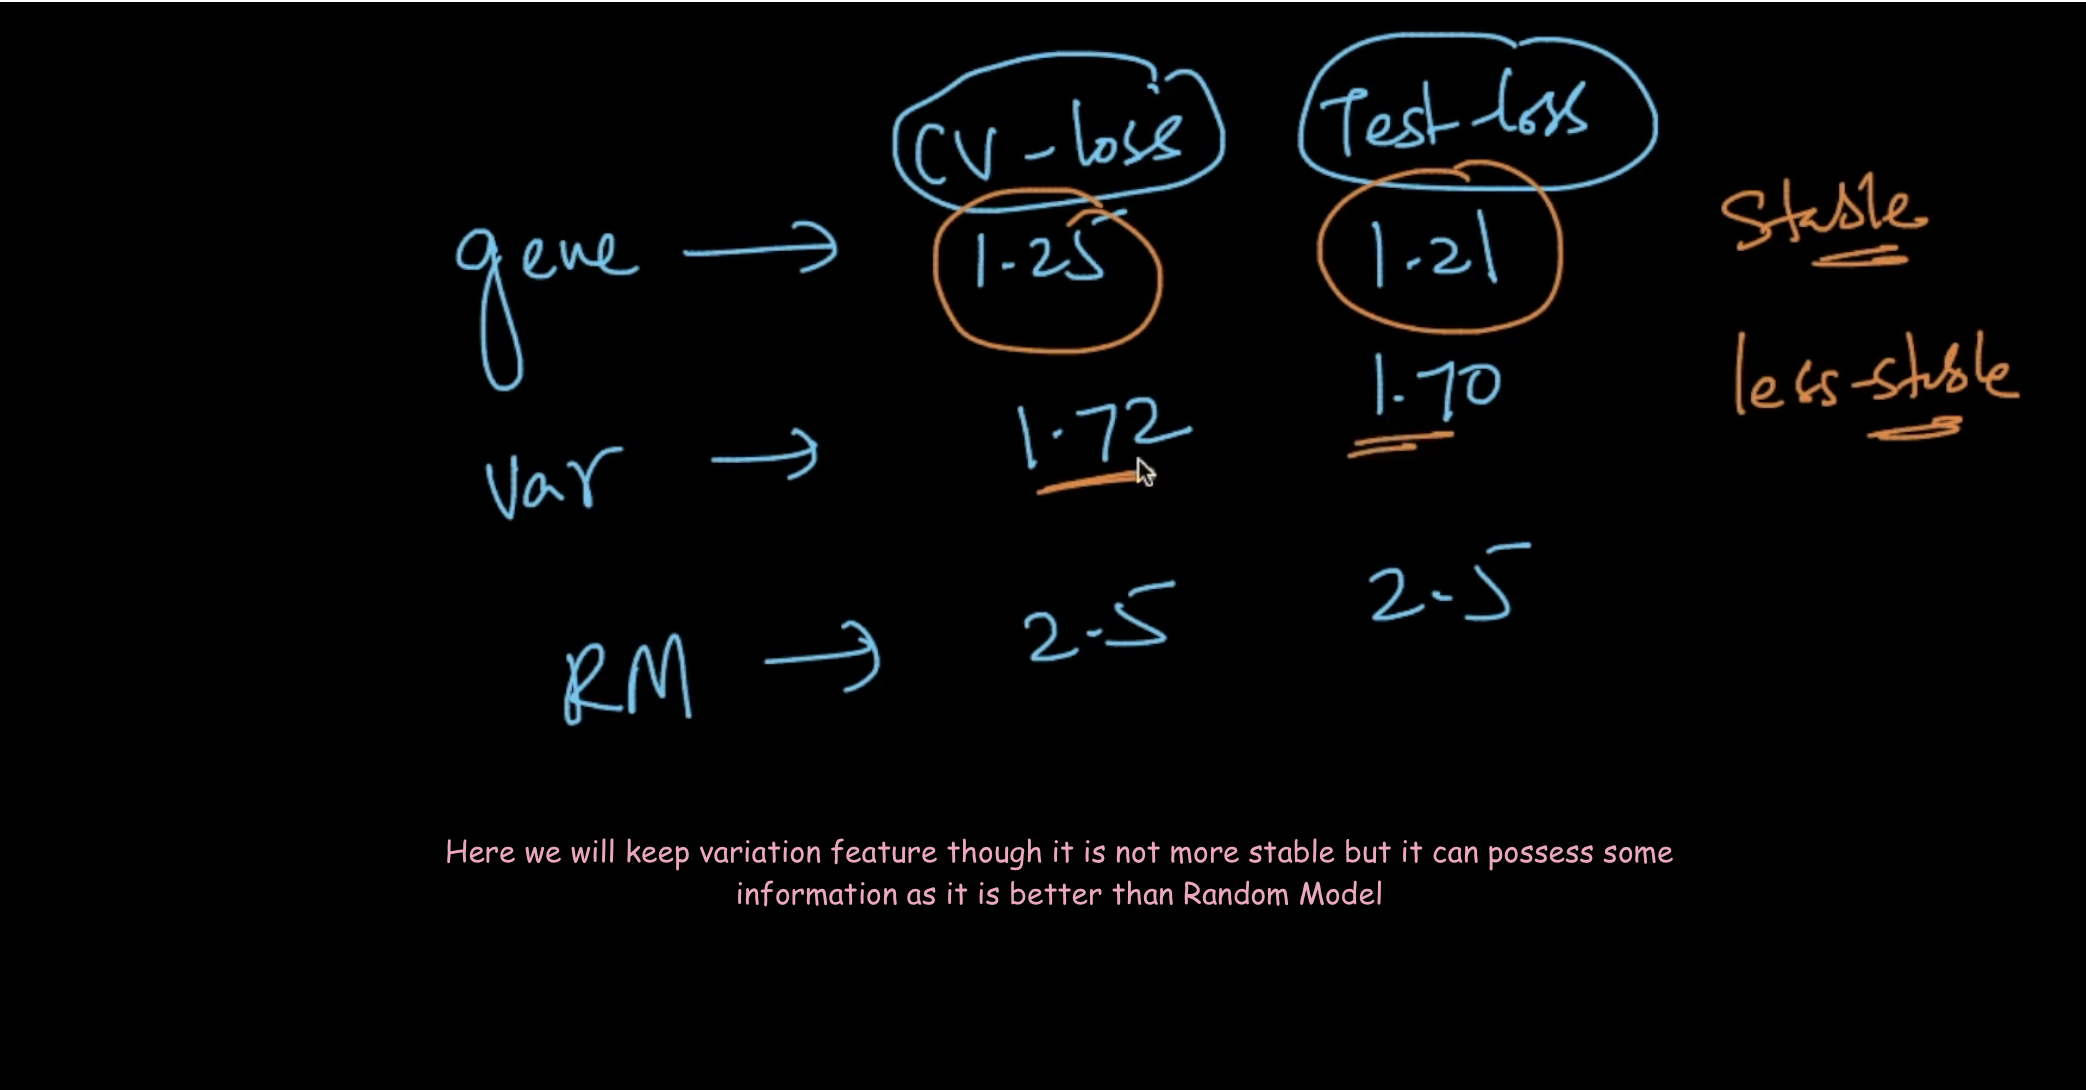 CV - loss Test-loss
gene → 1.25 1.21 Stable
Var → 1.72 1.70 less-stable
RM → 2.5 2.5
Here we will keep variation feature though it is not more stable but it can possess some
information as it is better than Random Model